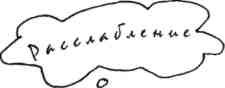 расслабление